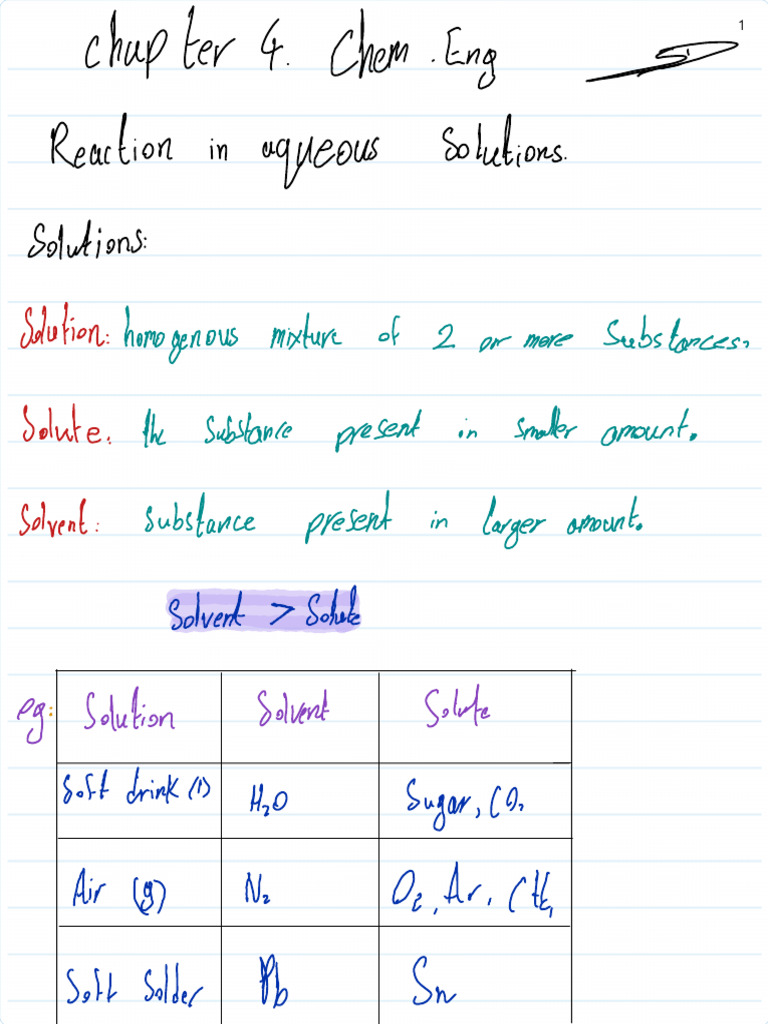 1
Chapter 4. Chem. Eng
Reaction in aqueous Solutions.
Solutions:
Solution: homogenous mixture of 2 or more Substances.
Solute: the substance present in smaller amount.
Solvent: substance present in larger amount.
Solvent > Solute
eg: Solution Solvent Solute
Soft drink (l) H₂O Sugar, CO₂
Air (g) N₂ O₂, Ar, CH₄
Soft Solder Pb Sn